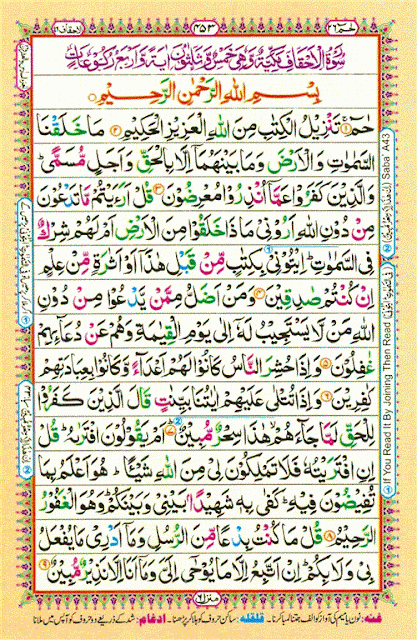 حٰمٓ ٢٦
٤٥٣
الاحقاف ٤٦
سُوْرَةُ الْاَحْقَافِ مَكِّيَّةٌ وَّهِيَ خَمْسٌ وَّثَلٰثُوْنَ اٰيَةً وَّاَرْبَعُ رُكُوْعَاتٍ
بِسْمِ اللّٰهِ الرَّحْمٰنِ الرَّحِيْمِ
حٰمٓ ۚ﴿١﴾ تَنْزِيْلُ الْكِتٰبِ مِنَ اللّٰهِ الْعَزِيْزِ الْحَكِيْمِ ﴿٢﴾ مَا خَلَقْنَا
السَّمٰوٰتِ وَالْاَرْضَ وَمَا بَيْنَهُمَاۤ اِلَّا بِالْحَقِّ وَاَجَلٍ مُّسَمًّى ؕ
وَالَّذِيْنَ كَفَرُوْا عَمَّاۤ اُنْذِرُوْا مُعْرِضُوْنَ ﴿٣﴾ قُلْ اَرَءَيْتُمْ مَّا تَدْعُوْنَ
مِنْ دُوْنِ اللّٰهِ اَرُوْنِيْ مَاذَا خَلَقُوْا مِنَ الْاَرْضِ اَمْ لَهُمْ شِرْكٌ
فِي السَّمٰوٰتِ ؕ اِيْتُوْنِيْ بِكِتٰبٍ مِّنْ قَبْلِ هٰذَاۤ اَوْ اَثٰرَةٍ مِّنْ عِلْمٍ
اِنْ كُنْتُمْ صٰدِقِيْنَ ﴿٤﴾ وَمَنْ اَضَلُّ مِمَّنْ يَّدْعُوْا مِنْ دُوْنِ
اللّٰهِ مَنْ لَّا يَسْتَجِيْبُ لَهٗۤ اِلٰى يَوْمِ الْقِيٰمَةِ وَهُمْ عَنْ دُعَآئِهِمْ
غٰفِلُوْنَ ﴿٥﴾ وَاِذَا حُشِرَ النَّاسُ كَانُوْا لَهُمْ اَعْدَآءً وَّكَانُوْا بِعِبَادَتِهِمْ
كٰفِرِيْنَ ﴿٦﴾ وَاِذَا تُتْلٰى عَلَيْهِمْ اٰيٰتُنَا بَيِّنٰتٍ قَالَ الَّذِيْنَ كَفَرُوْا
لِلْحَقِّ لَمَّا جَآءَهُمْ ۙ هٰذَا سِحْرٌ مُّبِيْنٌ ﴿٧﴾ اَمْ يَقُوْلُوْنَ افْتَرٰىهُ ؕ قُلْ
اِنِ افْتَرَيْتُهٗ فَلَا تَمْلِكُوْنَ لِيْ مِنَ اللّٰهِ شَيْـًٔا ؕ هُوَ اَعْلَمُ بِمَا
تُفِيْضُوْنَ فِيْهِ ؕ كَفٰى بِهٖ شَهِيْدًۢا بَيْنِيْ وَبَيْنَكُمْ ؕ وَهُوَ الْغَفُوْرُ
الرَّحِيْمُ ﴿٨﴾ قُلْ مَا كُنْتُ بِدْعًا مِّنَ الرُّسُلِ وَمَاۤ اَدْرِيْ مَا يُفْعَلُ
بِيْ وَلَا بِكُمْ ؕ اِنْ اَتَّبِعُ اِلَّا مَا يُوْحٰۤى اِلَيَّ وَمَاۤ اَنَا اِلَّا نَذِيْرٌ مُّبِيْنٌ ﴿٩﴾
منزل ٦
غنہ: نون یا میم کی آواز کو الف جتنا لمبا کرنا۔ قلقلہ: ساکن حروف کو ہلا کر پڑھنا۔ ادغام: شد کے ذریعے دو حروف کو آپس میں ملانا
Saba' A43
If You Read It By Joining Then Read